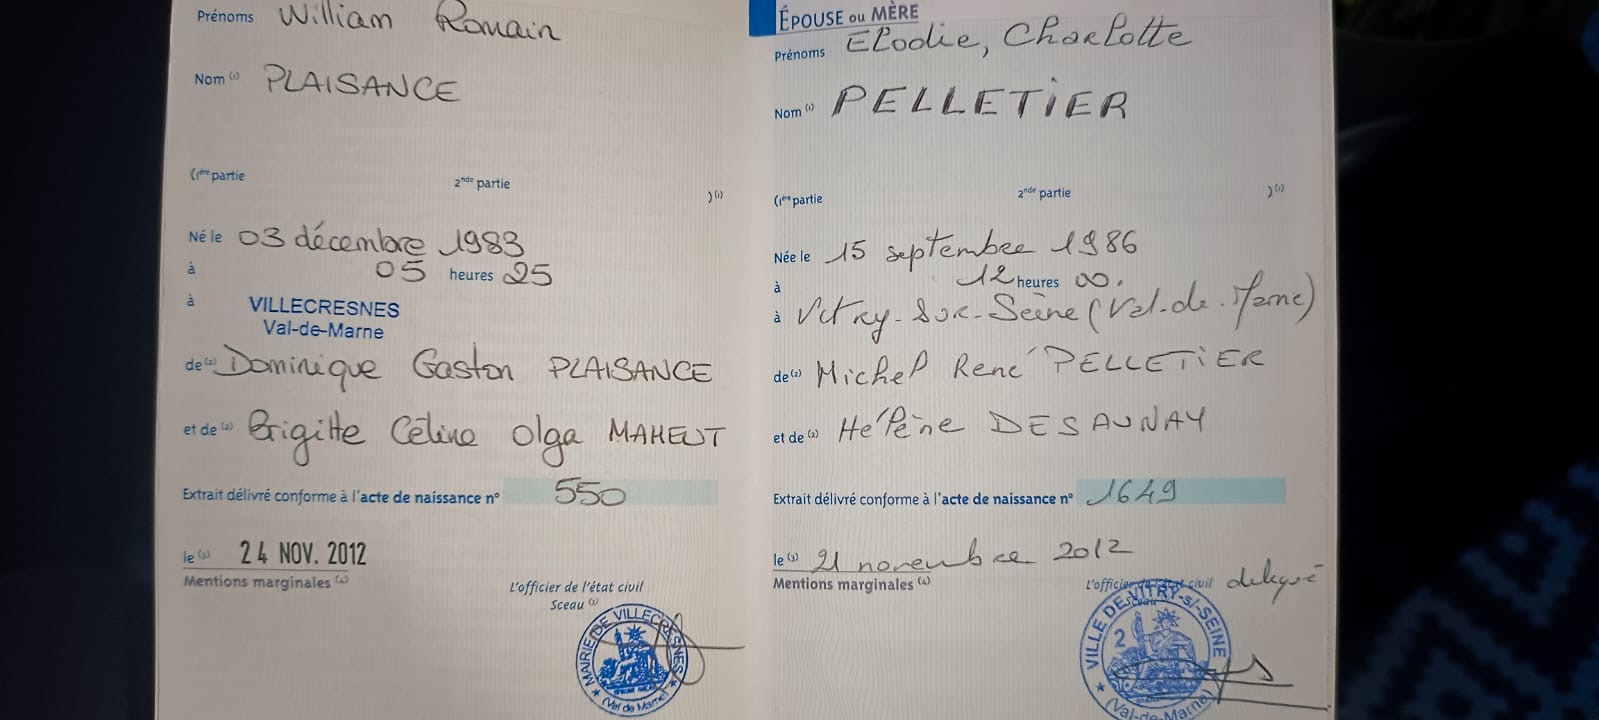 Prénoms William Romain
Nom (1) PLAISANCE
(1ère partie 2nde partie )(1)
Né le 03 décembre 1983
à 05 heures 25
à VILLECRESNES
Val-de-Marne
de (2) Dominique Gaston PLAISANCE
et de (2) Brigitte Céline Olga MAHEUT
Extrait délivré conforme à l'acte de naissance n° 550
le (3) 24 NOV. 2012
Mentions marginales (4)
L'officier de l'état civil
Sceau (3)
MAIRIE DE VILLECRESNES
(Val de Marne)
ÉPOUSE OU MÈRE
Prénoms Elodie, Charlotte
Nom (1) PELLETIER
(1ère partie 2nde partie )(1)
Née le 15 septembre 1986
à 12 heures 00.
à Vitry-Sur-Seine (Val-de-Marne)
de (2) Michel René PELLETIER
et de (2) Hélène DESAUNAY
Extrait délivré conforme à l'acte de naissance n° 1649
le (3) 21 novembre 2012
Mentions marginales (4)
L'officier civil délégué
VILLE DE VITRY-s/-SEINE
2
(Val-de-Marne)